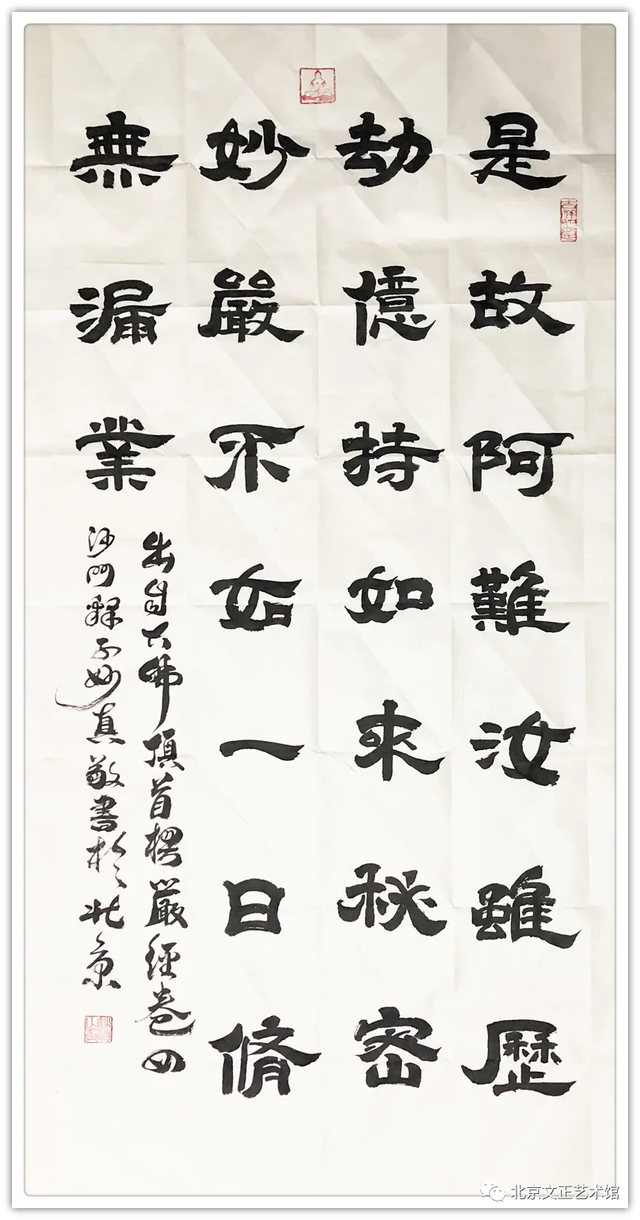 是故阿難汝雖歷
劫億持如來秘密
妙嚴不如一日脩
無漏業
出自大佛頂首楞嚴經卷四
沙門釋子妙真敬書於北京
北京文正艺术馆